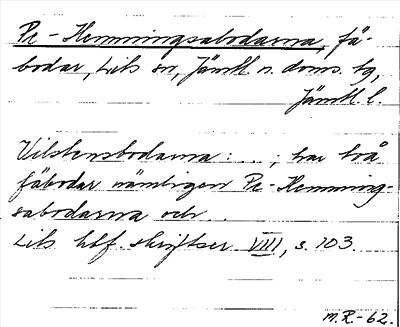 Pe-Hemmingsabodarna, fä-
bodar, Lits sn, Jämtl. n. doms. tg,
Jämtl. l.
Vilstensbodarna: . . , har två
fäbodar nämligen Pe-Hemming-
sabodarna och . .
Lits hbf. skriftser. VIII, s. 103.
M.R.-62.